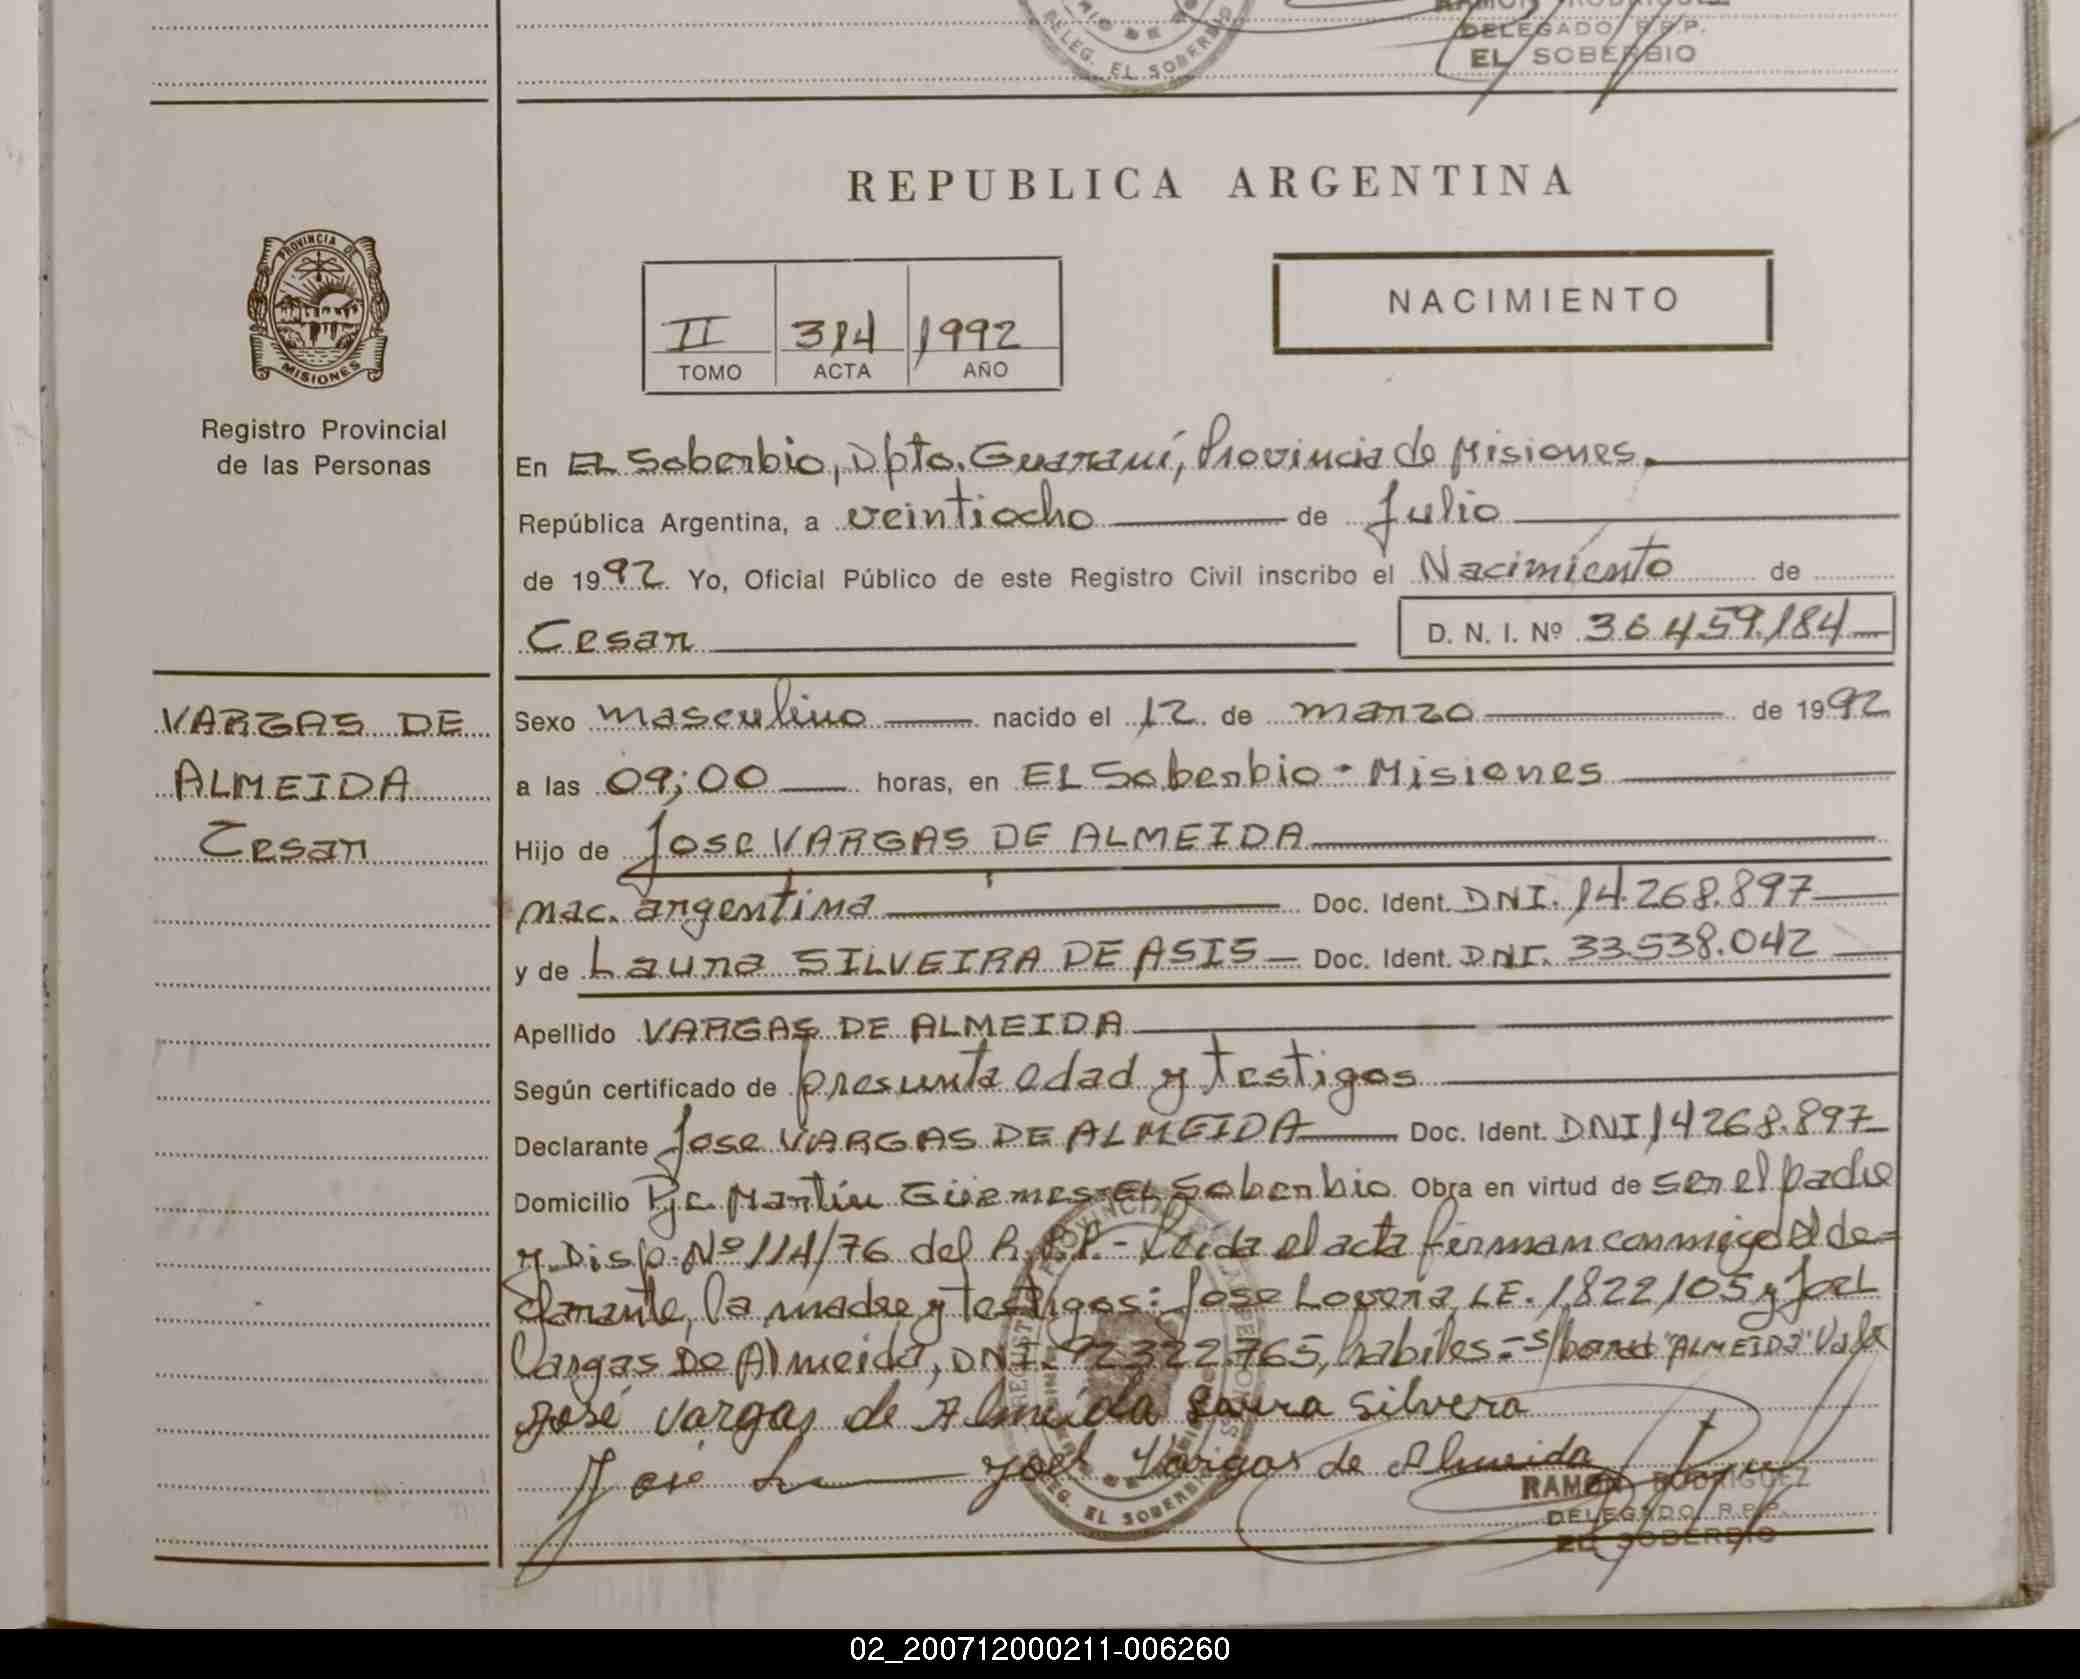 DELEG. EL SOBERBIO
DELEGADO R.P.P.
EL SOBERBIO
REPUBLICA ARGENTINA
PROVINCIA DE
MISIONES
Registro Provincial
de las Personas
NACIMIENTO
II 314 1992
TOMO ACTA AÑO
En EL Soberbio, Dpto. Guaraní, Provincia de Misiones.
República Argentina, a veintiocho de Julio
de 1992. Yo, Oficial Público de este Registro Civil inscribo el Nacimiento de
Cesar D. N. I. Nº 36.459.184
VARGAS DE
ALMEIDA
Cesar
Sexo masculino nacido el 12 de marzo de 1992
a las 09;00 horas, en EL Soberbio - Misiones
Hijo de Jose VARGAS DE ALMEIDA
nac. argentina Doc. Ident. DNI. 14.268.897
y de Laura SILVEIRA DE ASIS Doc. Ident. DNI. 33.538.042
Apellido VARGAS DE ALMEIDA
Según certificado de presunta edad y testigos
Declarante Jose VARGAS DE ALMEIDA Doc. Ident. DNI 14268.897
Domicilio Pje. Martín Güemes-EL Soberbio Obra en virtud de ser el padre
y Disp. Nº 114/76 del R.P.P.- Leida el acta firman conmigo el de=
clarante, la madre y testigos: Jose Lovera, LE. 1822105 y Joel
Vargas De Almeida, DNI. 92322.765, habiles=s/borrd "ALMEIDA" Vale
José Vargas de Almeida Laura Silvera
José Joel Vargas de Almeida
RAMON RODRIGUEZ
DELEGADO R.P.P.
EL SOBERBIO
02_200712000211-006260